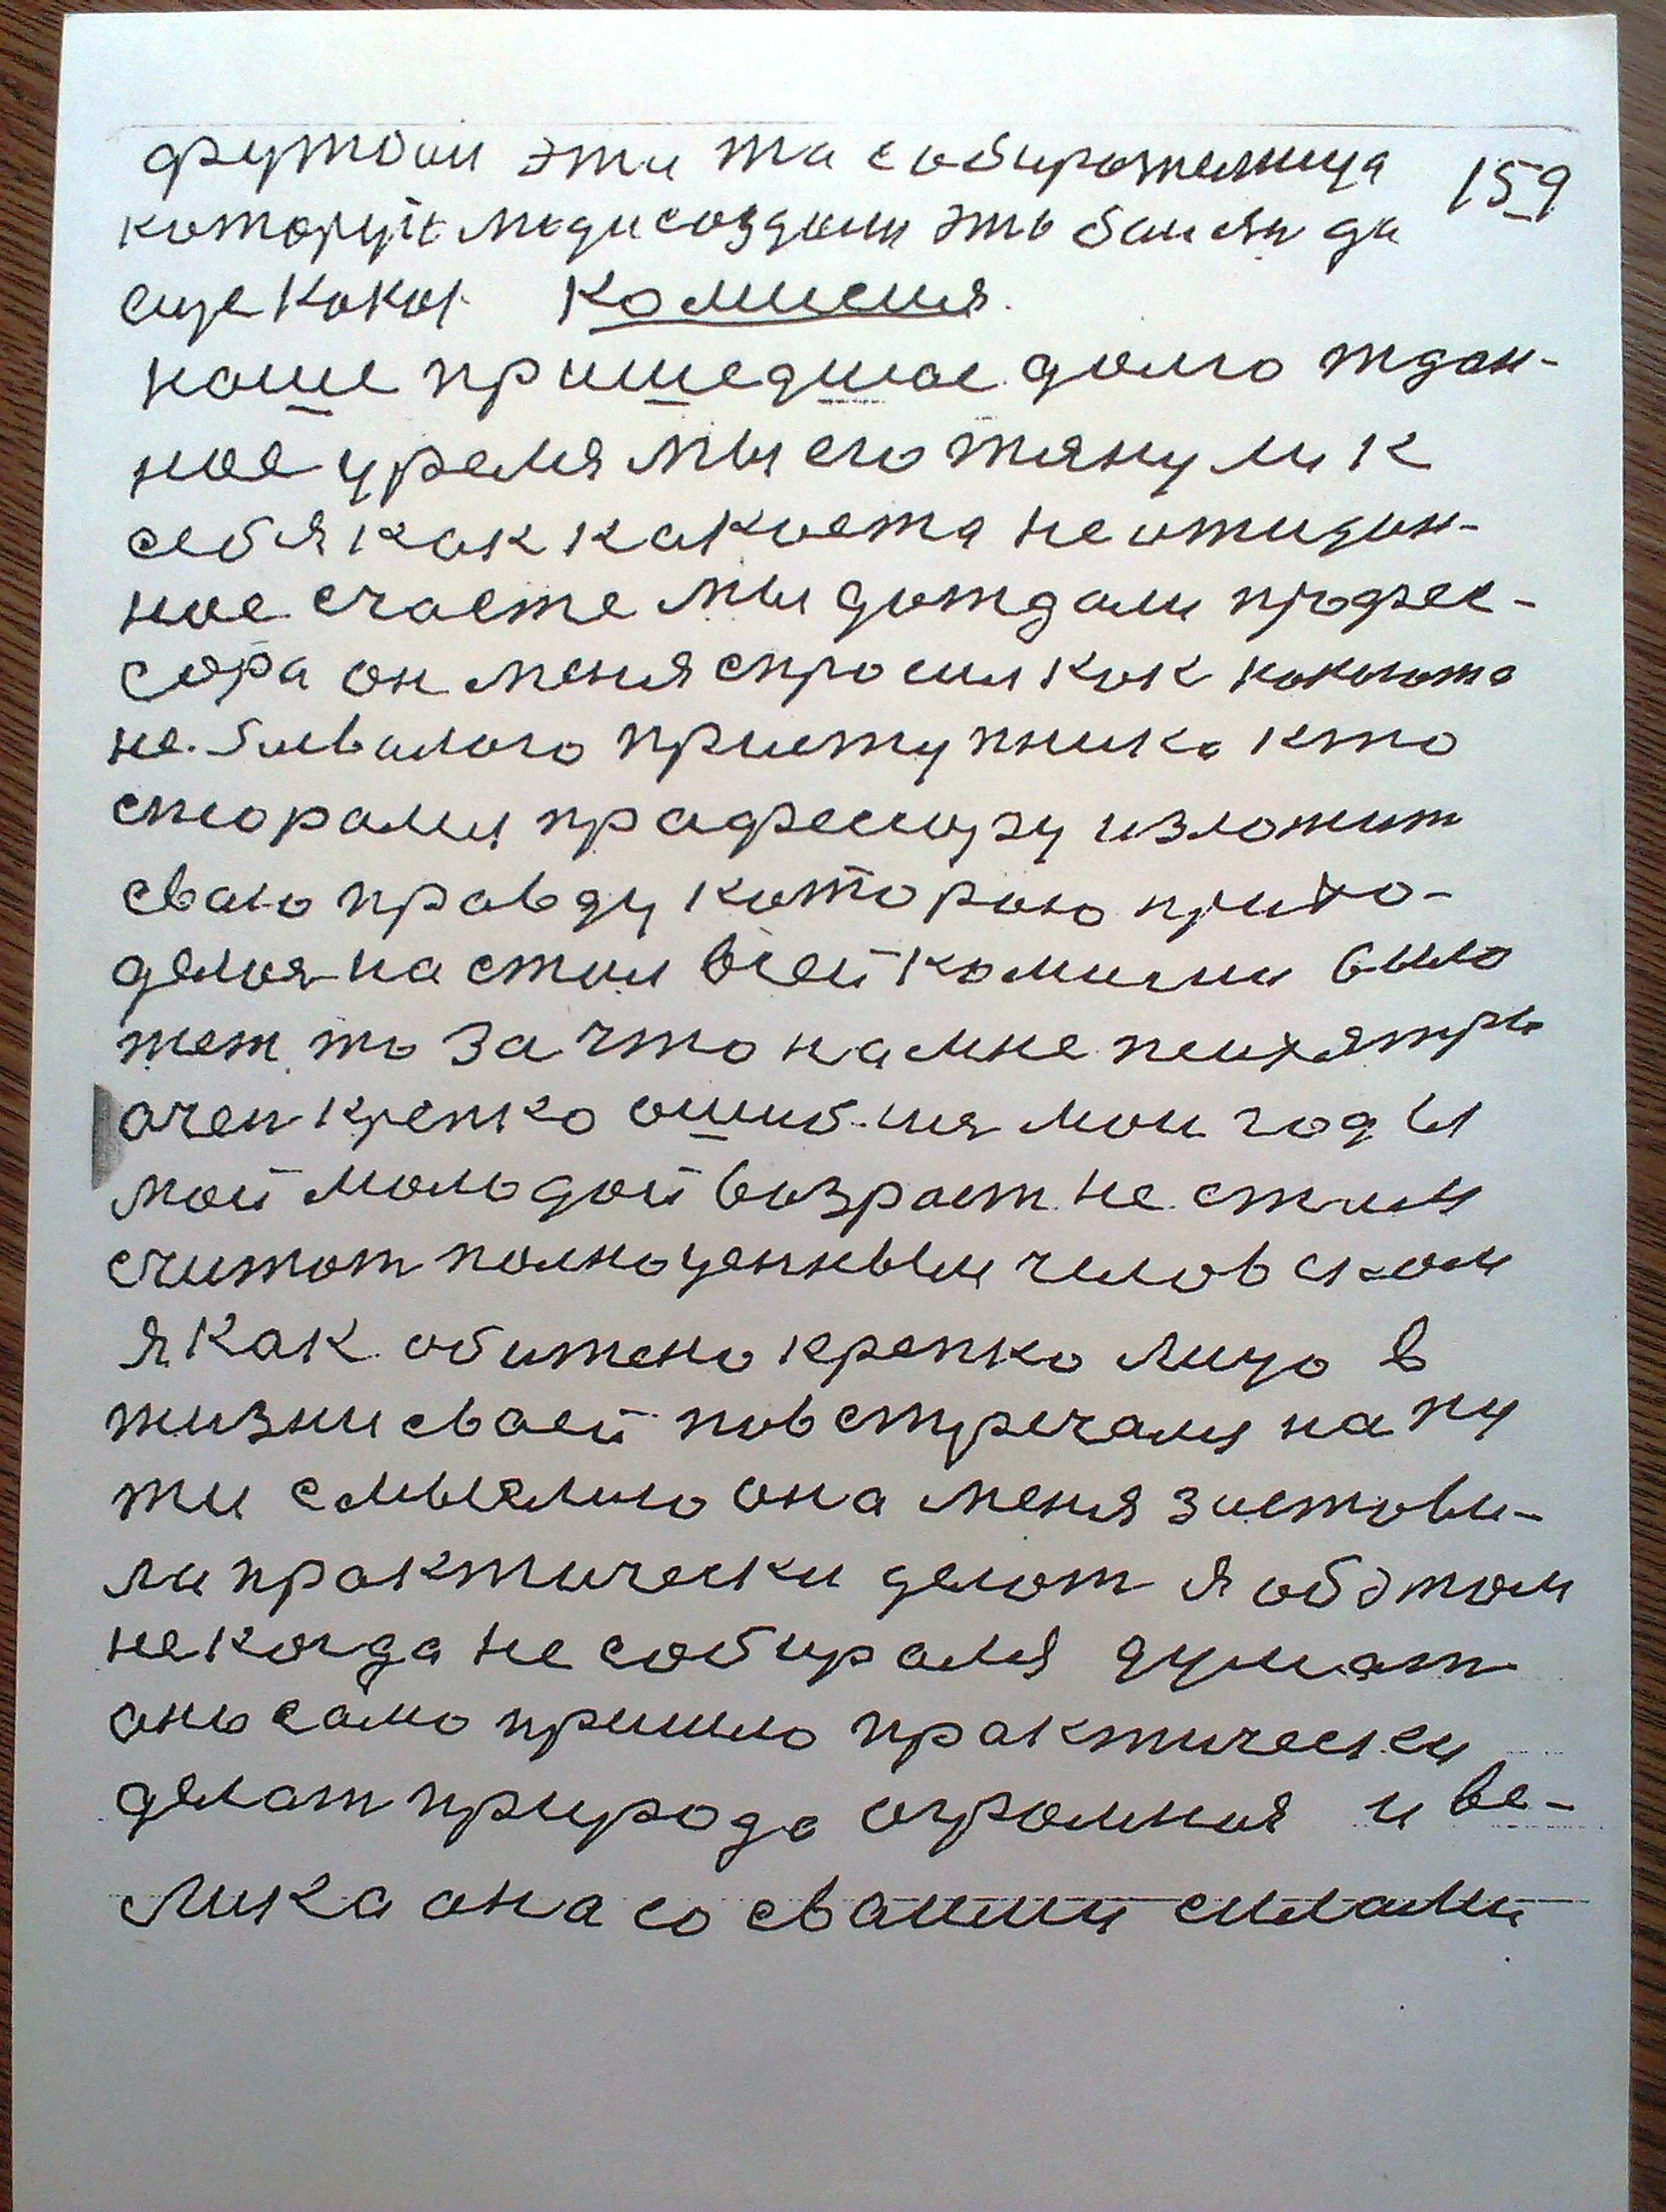 159
эти та собирателница
люди создали это балезн да
еще кокая комисия.
наше пришедшое долго ждан-
ное уремя мы его тянули к
себя как какоета не ожидан-
ное счасте мы дождали профес-
сора он меня спросил как какогота
не бывалого приступника кто
профессору изложит
сваю правду которою прихо-
на стол всей комисии
за что на мне психятры
очен крепко ошиблися мои годы
мой молодой возраст не стали
считат полноценным человеком
я как обижено крепко лицо в
жизни своей повстречался на пу
ти с мыслию она меня застови-
ла практически делат я об этом
некогда не собирался думат
оно само пришло практически
делат природа огромная и ве-
лика она со сваими силами